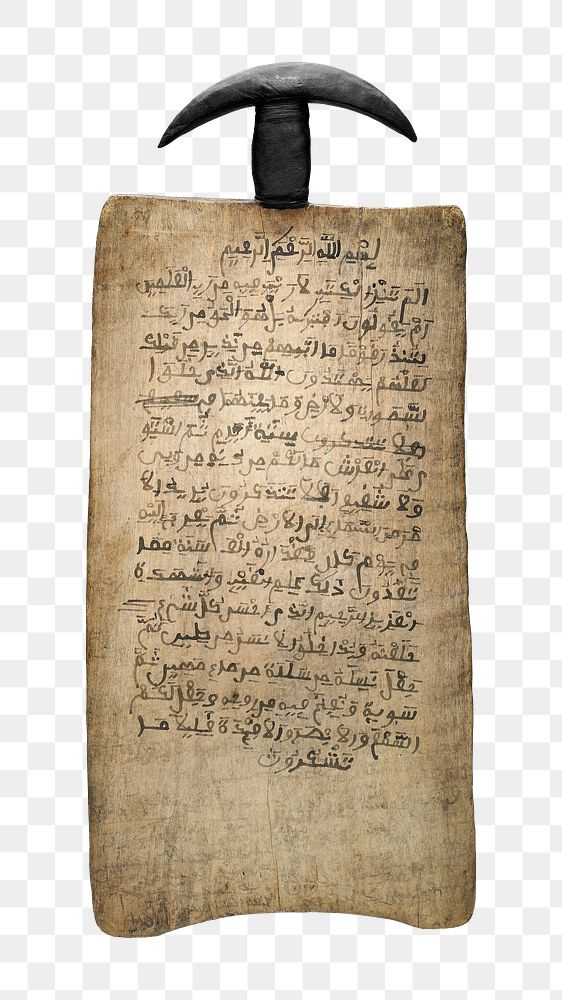 بسم الله الرحمن الرحيم
الم تنزيل الكتب لا ريب فيه من رب العلمين
ام يقولون افتريه بل هو الحق من ربك
لتنذر قوما ما اتيهم من نذير من قبلك
لعلهم يهتدون الله الذي خلق ا
لسموت والارض وما بينهما في
افلا تتذكرون ستة ايام ثم استوى
على العرش ما لكم من دونه من ولي
ولا شفيع افلا تتذكرون يدبر الا
مر من السماء الى الارض ثم يعرج اليه
في يوم كان مقداره الف سنة مما
تعدون ذلك علم الغيب والشهدة
العزيز الرحيم الذي احسن كل شيء
خلقه وبدا خلق الانسن من طين ثم
جعل نسله من سللة من ماء مهين ثم
سويه ونفخ فيه من روحه وجعل لكم
السمع والابصر والافئدة قليلا ما
تشكرون